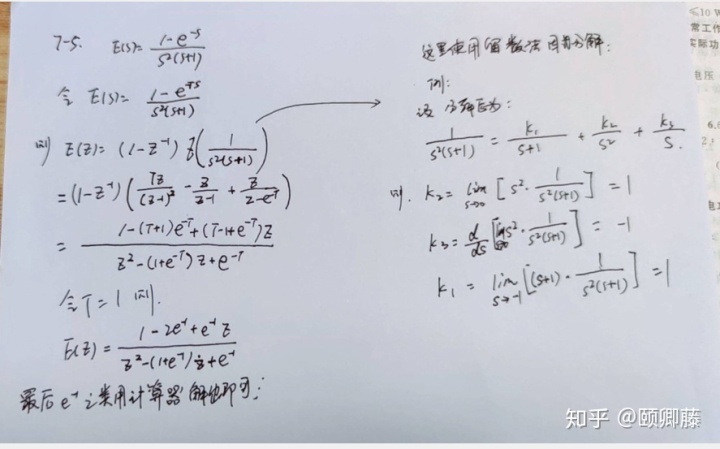 7-5. E(s) = \frac{1-e^{-s}}{s^2(s+1)}
令 E(s) = \frac{1-e^{-Ts}}{s^2(s+1)}
则 E(z) = (1-z^{-1}) z(\frac{1}{s^2(s+1)})
= (1-z^{-1}) (\frac{Tz}{(z-1)^2} - \frac{z}{z-1} + \frac{z}{z-e^{-T}})
= \frac{1-(T+1)e^{-T}+(T-1+e^{-T})z}{z^2-(1+e^{-T})z+e^{-T}}
令T=1 则.
E(z) = \frac{1-2e^{-1}+e^{-1}z}{z^2-(1+e^{-1})z+e^{-1}}
最后 e^{-1} 之类用计算器解他即可;
这里使用留数法因式分解:
例:
设 分解后为:
\frac{1}{s^2(s+1)} = \frac{k_1}{s+1} + \frac{k_2}{s^2} + \frac{k_3}{s}.
则. k_2 = \lim_{s→0} [s^2·\frac{1}{s^2(s+1)}] = 1
k_3 = \frac{d}{ds} [s^2·\frac{1}{s^2(s+1)}] = -1
k_1 = \lim_{s→-1} [(s+1)·\frac{1}{s^2(s+1)}] = 1
≤10 W
常工作
实际功
电压
知乎 @颐卿藤